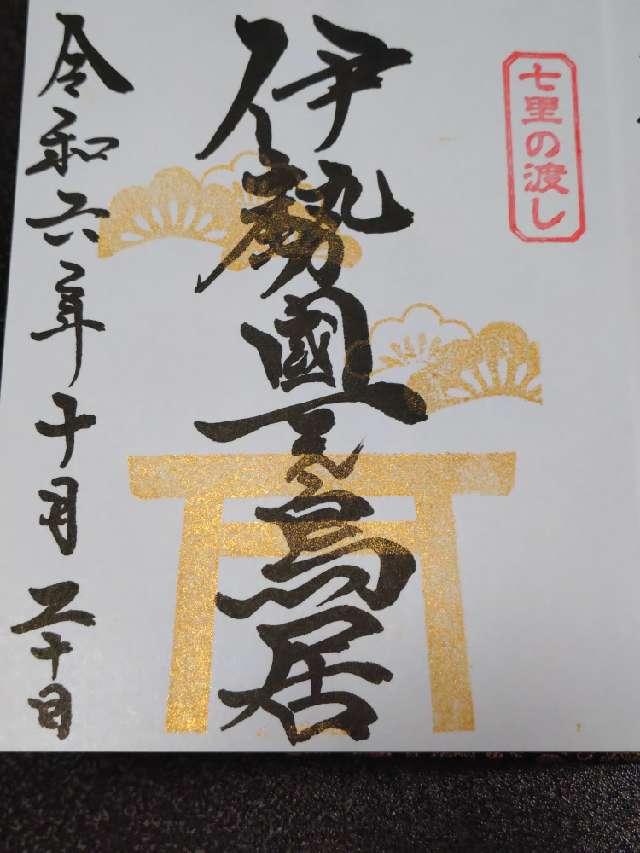 七里の渡し
伊勢國一之鳥居
令和六年十月二十日